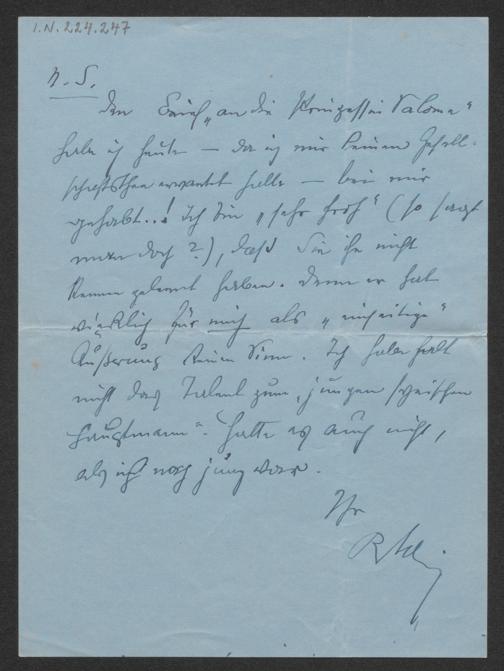 I.N. 224.247
N.S.
Den Brief „an die Prinzessin Salome"
habe ich heute — da ich mir keinen Gesell-
schafts erwartet hatte — bei mir
gehabt..! Ich bin „sehr froh" (so sagt
man doch?), daß Sie ihn nicht
kennen gelernt haben. Denn er hat
wirklich für mich als „einseitige"
Äußerung keinen Sinn. Ich habe halt
nicht das Talent zum „jungen syrischen
Hauptmann". Hatte es auch nicht,
als ich noch jung war.
Ihr